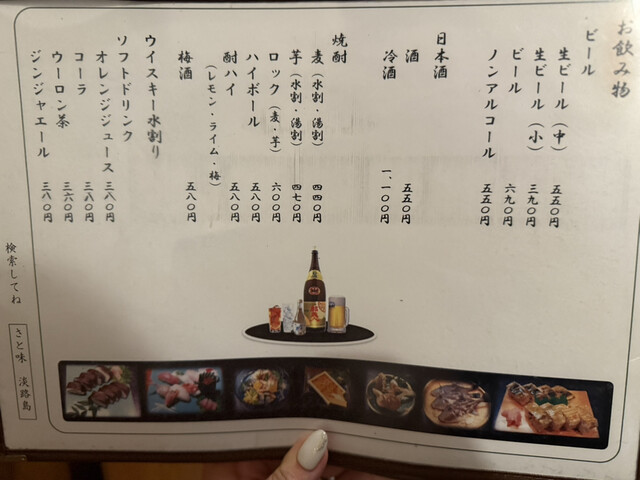 お飲み物
ビール
生ビール(中) 五五〇円
生ビール(小) 三九〇円
ビール 六九〇円
ノンアルコール 五五〇円
日本酒
酒 五五〇円
冷酒 一、一〇〇円
焼酎
麦(水割・湯割) 四四〇円
芋(水割・湯割) 四七〇円
ロック(麦・芋) 六〇〇円
ハイボール 五八〇円
酎ハイ 五八〇円
(レモン・ライム・梅)
梅酒 五八〇円
ウイスキー水割り
ソフトドリンク
オレンジジュース 三八〇円
コーラ 三八〇円
ウーロン茶 三六〇円
ジンジャエール 三八〇円
検索してね さと味 淡路島